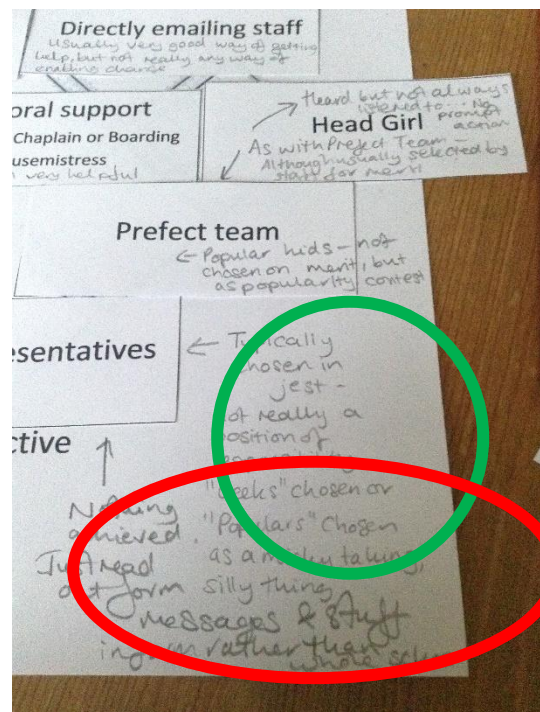 Directly emailing staff
Usually very good way of getting
help, but not really any way of
enabling change
oral support
Chaplain or Boarding
usemistress
very helpful
Heard but not always
listened to... No
prompt
action
Head Girl
As with Prefect Team
Although usually selected by
staff for merit
Prefect team
← Popular kids - not
chosen on merit, but
as popularity contest
esentatives
← Typically
chosen in
jest -
not really a
position of
responsibility
"Geeks" chosen or
"Populars" Chosen
as a micky taking,
silly thing
ctive
Nothing
achieved.
Just read
out form
messages & stuff
in form rather than
whole school